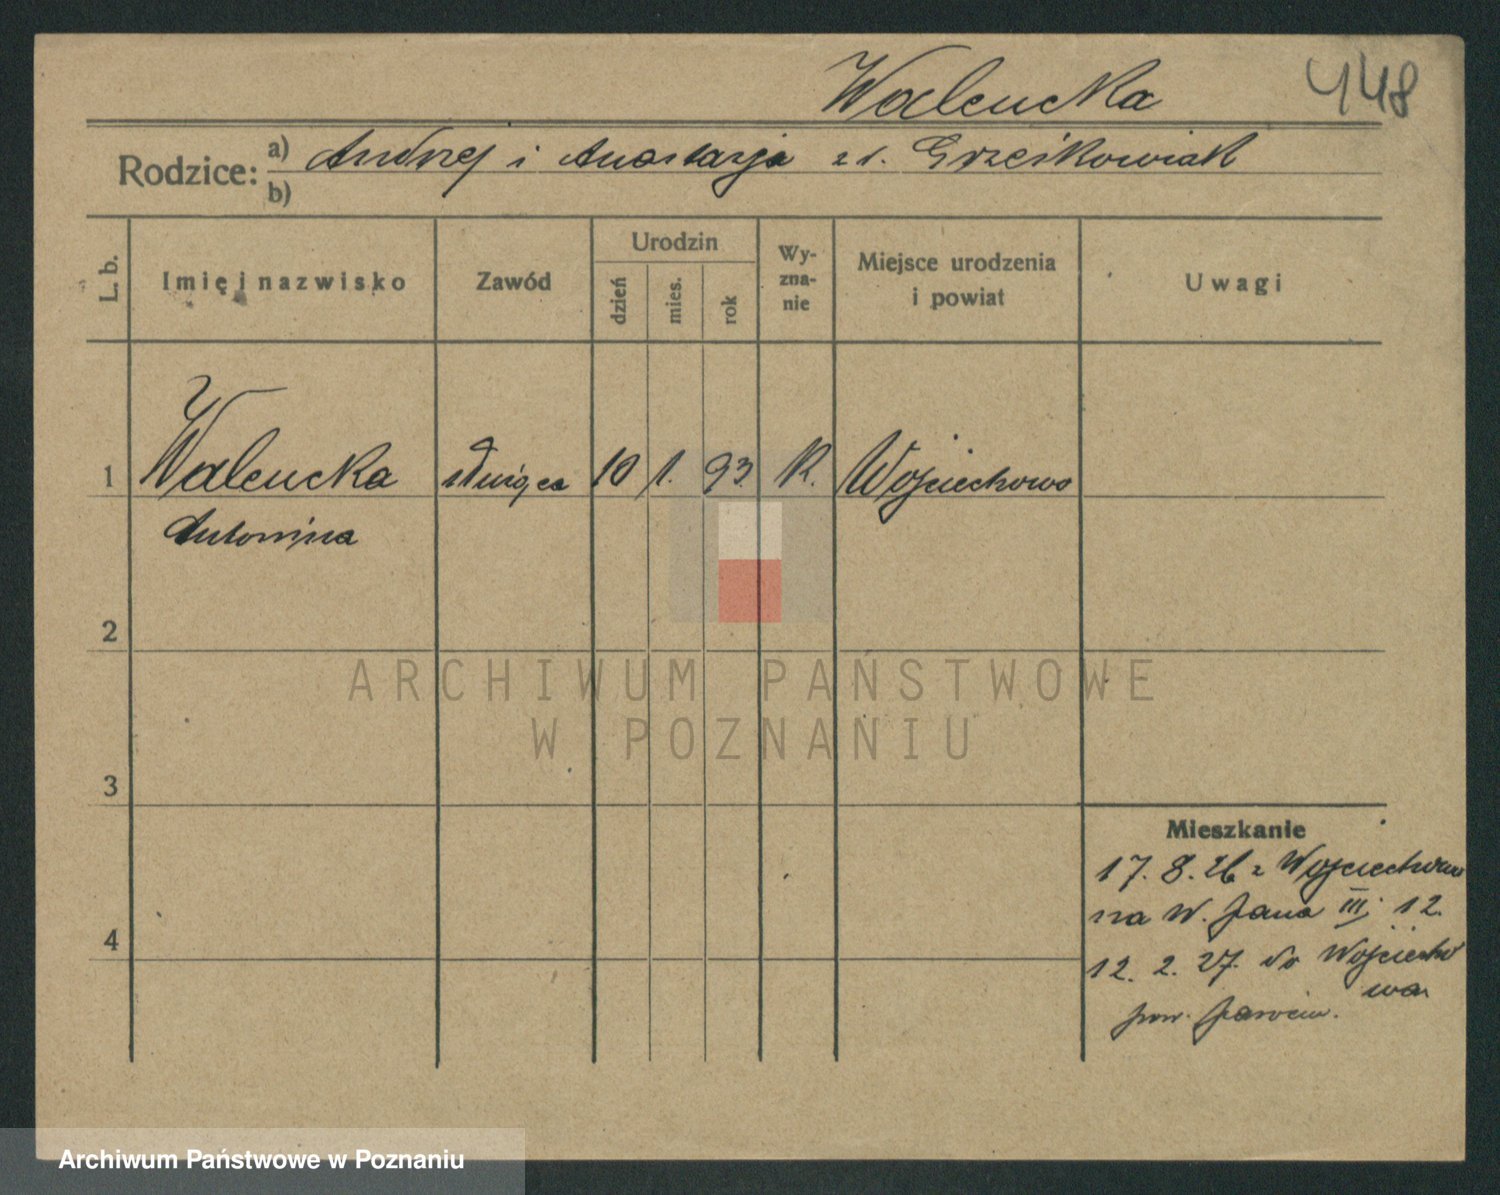 Walencka
448
Rodzice: a) Andrzej i Anastazja z d. Grześkowiak
b)
L. b.
Imię i nazwisko
Zawód
Urodzin
dzień
mies.
rok
Wy-
zna-
nie
Miejsce urodzenia
i powiat
Uwagi
1 Walencka służąca 10 1. 93. K. Wojciechowo
Antonina
2
3
4
Mieszkanie
17. 8. 26 z Wojciechowo
na W. Jana III 12.
12. 2. 27. do Wojciecho
wa
pow. Jarocin.
ARCHIWUM PAŃSTWOWE
W POZNANIU
Archiwum Państwowe w Poznaniu